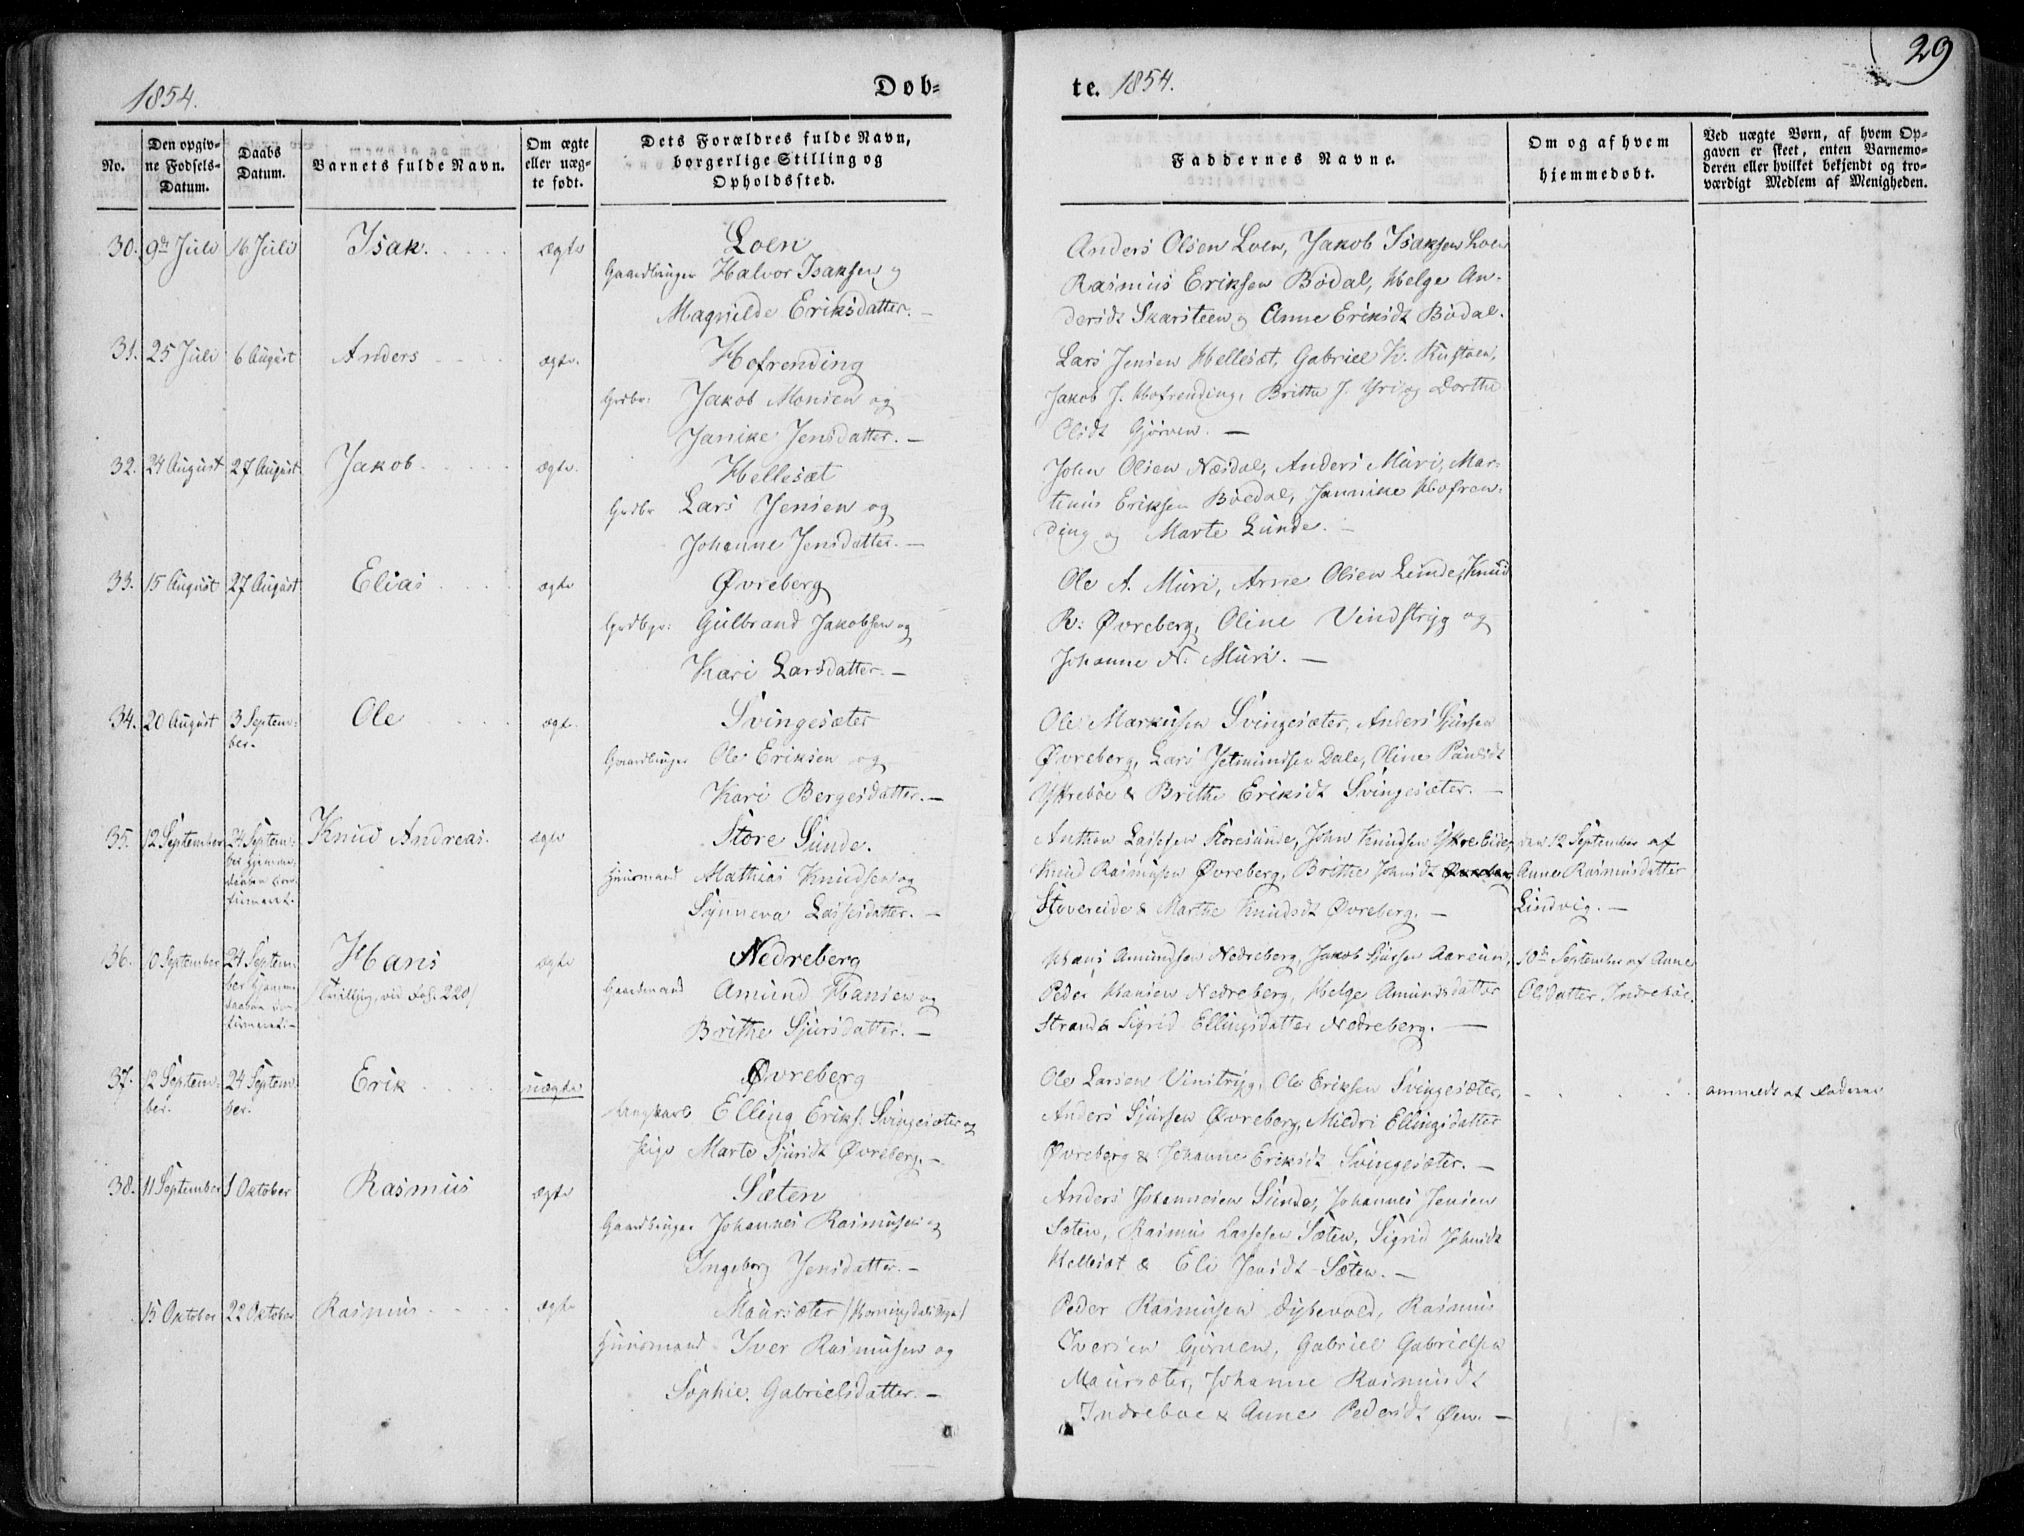 29
1854.
Døb-
te. 1854.
No.
Den opgiv-
ne Fødsels-
Datum.
Daabs
Datum.
Barnets fulde Navn.
Om ægte
eller uæg-
te født.
Dets Forældres fulde Navn,
borgerlige Stilling og
Opholdssted.
Faddernes Navne.
Om og af hvem
hjemmedøbt.
Ved uægte Børn, af hvem Op-
gaven er skeet, enten Barnemo-
deren eller hvilket bekjendt og tro-
værdigt Medlem af Menigheden.
30. 9de Juli 16 Juli Isak. ægte Loen
Gaardbruger Halvor Isaksen og
Magnilde Eriksdatter. –
Anders Olsen Loen, Jakob Isaksen Loen
Rasmus Eriksen Bødal, Helge An-
dersdt Skarsteen og Anne Eriksdt Bødal.
31. 25 Juli 6 August Anders ægte. Hofrending
Grdbr: Jakob Monsen og
Janike Jensdatter. –
Lars Jensen Hellesæt, Gabriel K.
Jakob J. Hofrending, Brithe J. Yri og Dorthe
Olsdt Gjørven. –
32. 24 August 27 August Jakob ægte. Hellesæt
Grdbr Lars Jensen og
Johanne Jensdatter. –
John Olsen Næsdal, Anders Muri, Mar-
tinus Eriksen Bødal, Jannike Hofren-
ding og Marte Lunde. –
33. 15 August 27 August Elias ægte Øvreberg
Grdbgr: Gulbrand Jakobsen og
Kari Larsdatter. –
Ole A. Muri, Arne Olsen Lunde, Knud
R: Øvreberg, Oline Vindstryg og
Johanne N. Muri. –
34. 20 August 3 Septem-
ber.
Ole ægte. Svingesæter
Gaardbruger Ole Eriksen og
Kari Bergesdatter. –
Ole Markusen Svingesæter, Anders Sjursen
Øvreberg, Lars Jetmundsen Dale, Oline Paulsdt
Yttrebøe & Brithe Eriksdt Svingesæter. –
35. 12 September 24 Septem-
ber hjemme-
daaben con-
firmeret.
Knud Andreas. ægte Store Sunde.
Huusmand Mathias Knudsen og
Synneva Lassesdatter. –
Anthon Lassesen Storesunde, John Knudsen Yttre Eide,
Knud Rasmusen Øvreberg, Brithe Johnsdt Øvreberg
Stovereide & Marthe Knudsdt Øvreberg. –
den 12 September af
Anne Rasmusdatter
Lindvig. –
36. 10 September 24 Septem-
ber hjemme-
daaben con-
firmeret. –
Hans
/Tvilling, vid Fol. 220/
ægte Nedreberg
Gaardmand Amund Hansen og
Brithe Sjursdatter. –
Hans Amundsen Nedreberg, Jakob Sjursen Aareim,
Peder Hansen Nedreberg, Helge Amundsdatter
Strand & Sigrid Ellingsdatter Nedreberg. –
10de September af Anne
Olsdatter Indrebøe.
37. 12 Septem-
ber.
24 Septem-
ber.
Erik uægte Øvreberg
Ungkarl Elling Eriks. Svingesæter og
Pige Marte Sjursdt Øvreberg. –
Ole Larsen Vinstryg, Ole Eriksen Svingesæter,
Anders Sjursen Øvreberg, Mildri Ellingsdatter
Øvreberg & Johanne Eriksdt Svingesæter. –
anmeldt af Faderen
38. 11 September 1 Oktober Rasmus ægte Sæten
Gaardbruger Johannes Rasmusen og
Ingeborg Jensdatter. –
Anders Johannesen Sunde, Johannes Jensen
Sæten, Rasmus Lassesen Sæten, Sigrid Johnsdt
Hellesæt & Eli Jensdt Sæten. –
15 Oktober 22 Oktober Rasmus ægte Maursæter /Horningdals Sogn/
Huusmand Iver Rasmusen og
Sophie Gabrielsdatter. –
Peder Rasmusen Dybevold, Rasmus
Iversen Gjørven, Gabriel Gabrielsen
Maursæter, Johanne Rasmusdt
Indrebøe & Anne Pedersdt Øen. –